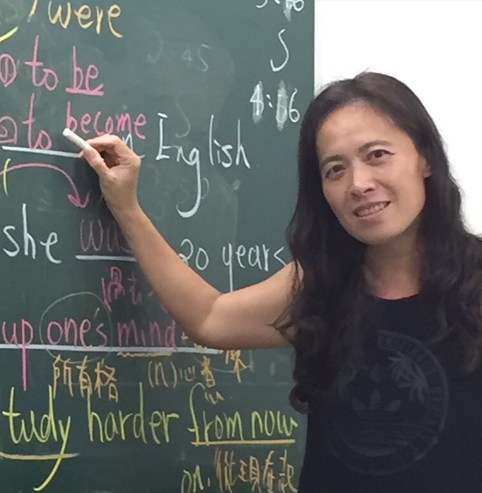 were
① to be
② to become
English
she was 20 years
up one's mind
所有格 (n)心意
study harder from now
on. 從現在起